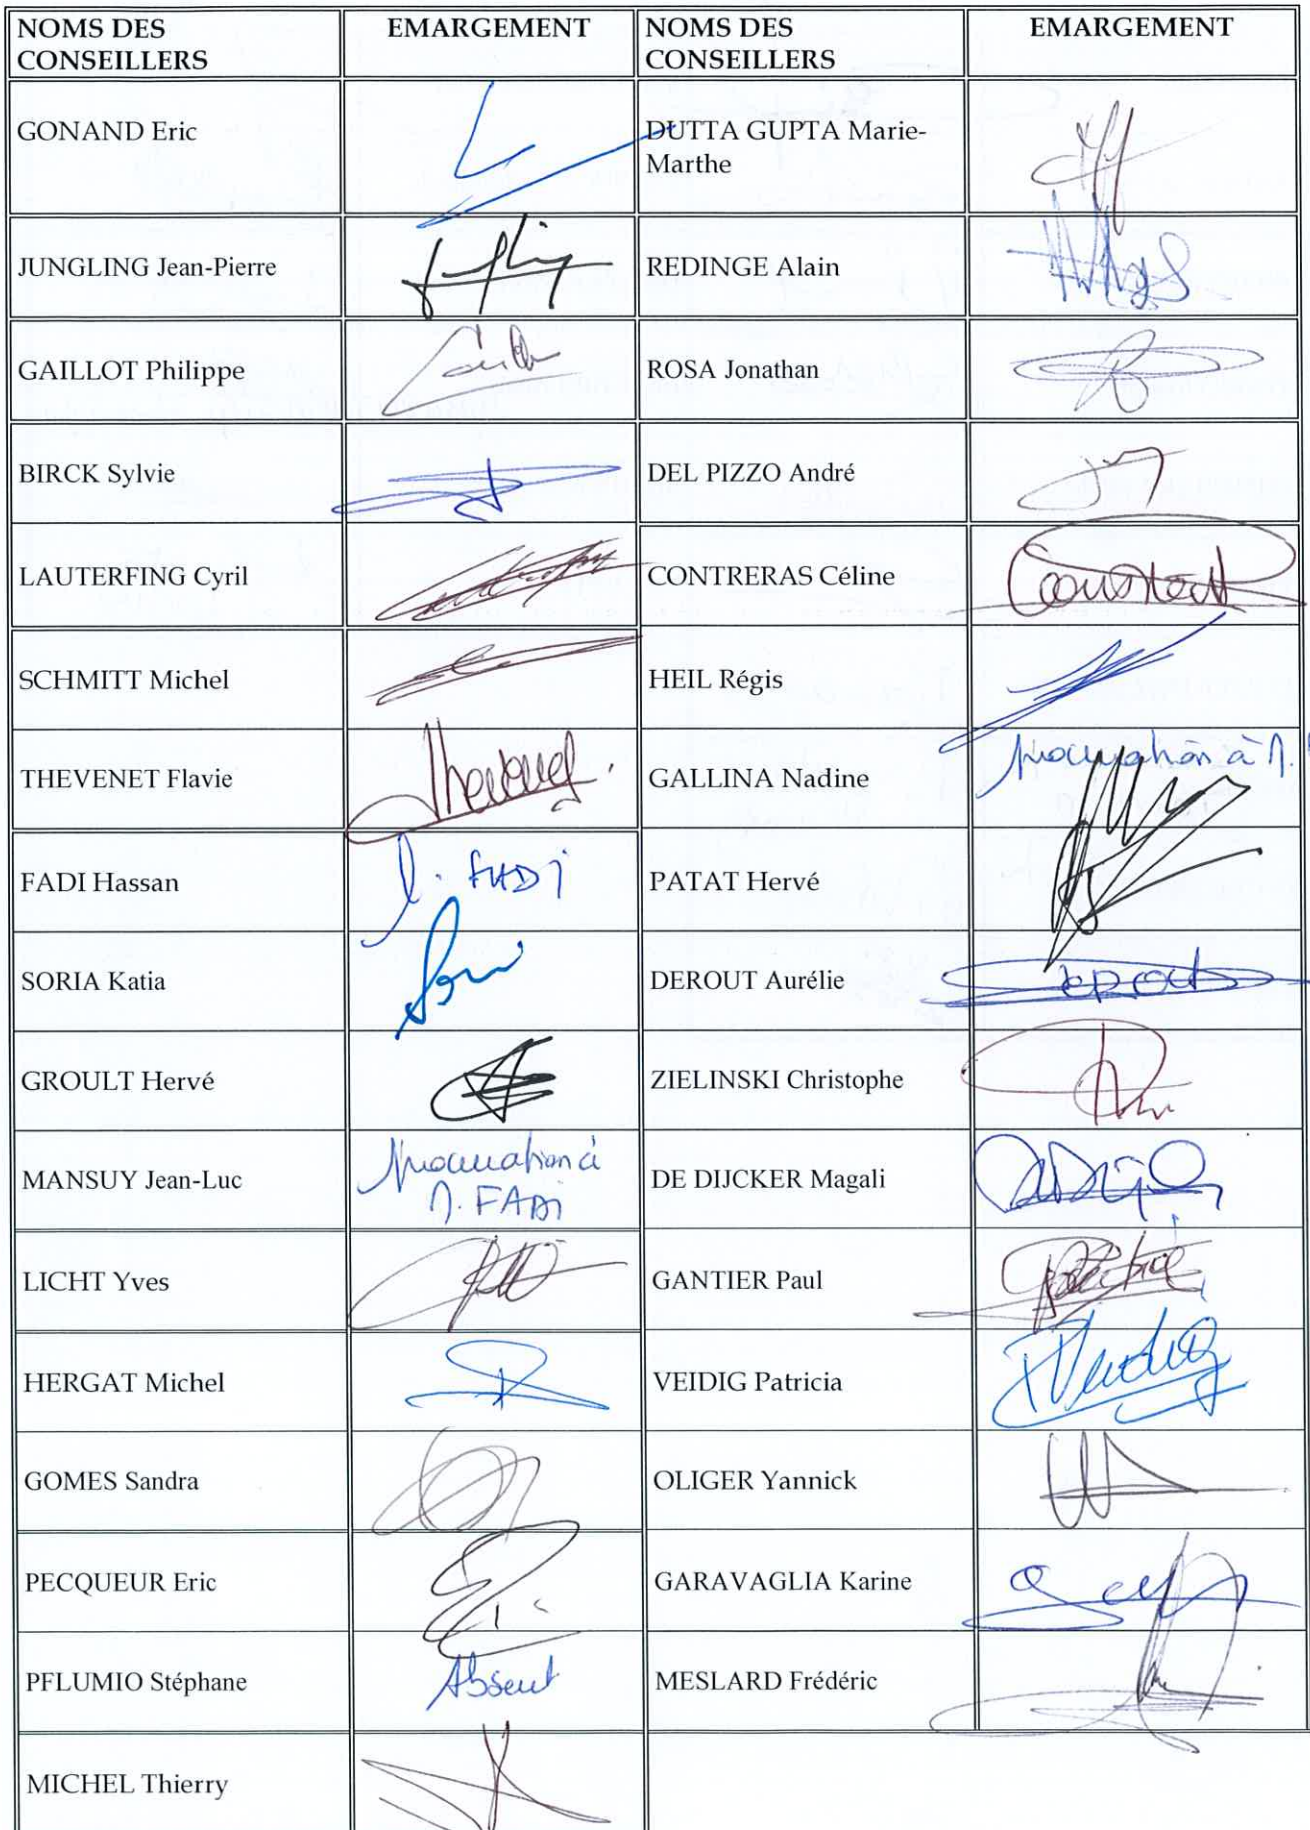 NOMS DES
CONSEILLERS
EMARGEMENT
NOMS DES
CONSEILLERS
EMARGEMENT
GONAND Eric
DUTTA GUPTA Marie-
Marthe
JUNGLING Jean-Pierre
REDINGE Alain
GAILLOT Philippe
ROSA Jonathan
BIRCK Sylvie
DEL PIZZO André
LAUTERFING Cyril
CONTRERAS Céline
SCHMITT Michel
HEIL Régis
THEVENET Flavie
GALLINA Nadine
Procuration à M.
FADI Hassan
FADI
PATAT Hervé
SORIA Katia
DEROUT Aurélie
GROULT Hervé
ZIELINSKI Christophe
MANSUY Jean-Luc
Procuration à
M. FADI
DE DIJCKER Magali
LICHT Yves
GANTIER Paul
HERGAT Michel
VEIDIG Patricia
GOMES Sandra
OLIGER Yannick
PECQUEUR Eric
GARAVAGLIA Karine
PFLUMIO Stéphane
Absent
MESLARD Frédéric
MICHEL Thierry